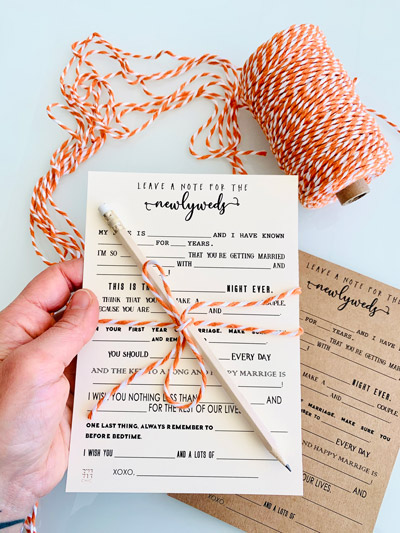 LEAVE A NOTE FOR THE
newlyweds
MY NAME IS ____________ AND I HAVE KNOWN
____________ FOR ____ YEARS.
I'M SO ____________ THAT YOU'RE GETTING MARRIED
WITH ____________ AND
THIS IS THE RIGHT EVER.
THINK THAT YOU MAKE A ____________ COUPLE.
BECAUSE YOU ARE ____________ AND ____________
YOUR FIRST YEAR MARRIAGE, MAKE SURE
AND
YOU SHOULD ____________ EVERY DAY
AND THE KEY TO A LONG AND HAPPY MARRIGE IS
____________!
I WISH YOU NOTHING LESS THAN ____________ AND
____________ FOR THE REST OF OUR LIVES.
ONE LAST THING, ALWAYS REMEMBER TO ____________
BEFORE BEDTIME.
I WISH YOU ____________ AND A LOTS OF ____________!
XOXO, ____________
LEAVE A NOTE FOR THE
newlyweds
FOR ____ YEARS. AND I HAVE
THAT YOU'RE GETTING MARRIED
WITH ____________ AND
RIGHT EVER.
MAKE A ____________ COUPLE.
AND
MARRIAGE, MAKE SURE YOU
EVERY DAY
HAPPY MARRIGE IS
AND
OUR LIVES.
XOXO, ____________ AND A LOTS OF ____________!